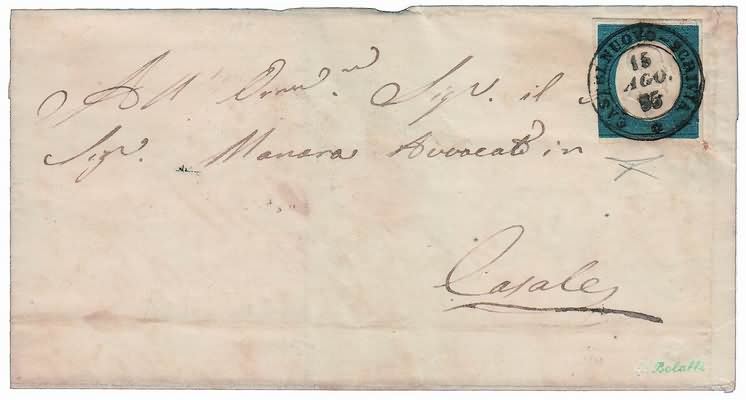 CASTELNUOVO-SCRIVIA
15
AGO.
55
All' Ornm.º Sigr. il
Sigr. Manara Avvocato in
Casale
Bolaffi